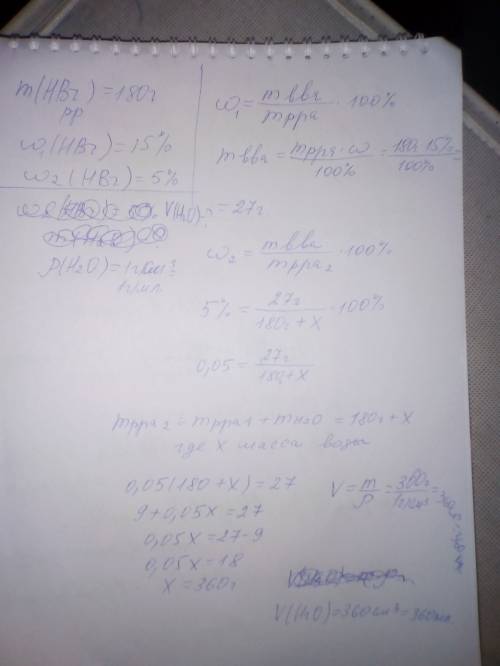 m(HBr) = 180г
рр
ω₁(HBr) = 15%
ω₂(HBr) = 5%
V(H₂O)-?
ρ(H₂O) = 1г/см³
1г/мл
ω₁ = mвва / mрра · 100%
mвва = mрра·ω / 100% = 180г·15% / 100% =
= 27г
ω₂ = mвва / mрра₂ · 100%
5% = 27г / 180г+x · 100%
0,05 = 27г / 180+x
mрра₂ = mрра1 + mH₂O = 180г+x
где x масса воды
0,05(180+x) = 27
9+0,05x = 27
0,05x = 27-9
0,05x = 18
x = 360г
V = m / ρ = 360г / 1г/см³ =
V(H₂O) = 360см³ = 360мл